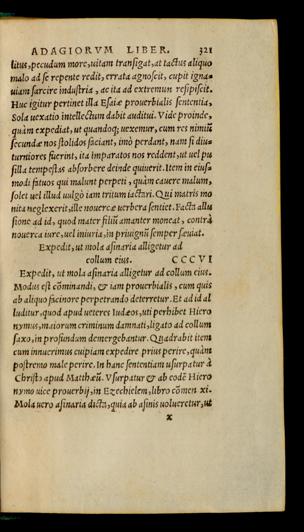 ADAGIORVM LIBER. 321
litus, pecudum more, uitam transigat, at tactus aliquo
malo ad se repente redit, errata agnoscit, cupit igna-
uiam sarcire industria, ac ita ad extremum resipiscit.
Huc igitur pertinet illa Esaiæ prouerbialis sententia,
Sola uexatio intellectum dabit auditui. Vide proinde,
quàm expediat, ut quandoq; uexemur, cum res nimiũ
secundæ nos stolidos faciant, imò perdant, nam si diu-
turniores fuerint, ita imparatos nos reddent, ut uel pu
silla tempestas absorbere deinde quiuerit. Item in eius-
modi fatuos qui malunt perpeti, quàm cauere malum,
solet uel illud uulgò iam tritum iactari. Qui matris mo
nita neglexerit, ille nouercæ uerbera sentiet. Facta allu
sione ad id, quod mater filiũ amanter moneat, contrà
nouerca iure, uel iniuria, in priuignũ semper sæuiat.
Expedit, ut mola asinaria alligetur ad
collum eius. CCCVI
Expedit, ut mola asinaria alligetur ad collum eius.
Modus est cõminandi, & iam prouerbialis, cum quis
ab aliquo facinore perpetrando deterretur. Et ad id al
luditur, quod apud ueteres Iudæos, uti perhibet Hiero
nymus, maiorum criminum damnati, ligato ad collum
saxo, in profundum demergebantur. Quadrabit item
cum innuerimus cuipiam expedire prius perire, quàm
postremo male perire. In hanc sententiam usurpatur à
Christo apud Matthæũ. Vsurpatur & ab eodẽ Hiero
nymo uice prouerbij, in Ezechielem, libro cõmen xi.
Mola uero asinaria dicta, quia ab asinis volueretur, ut
x